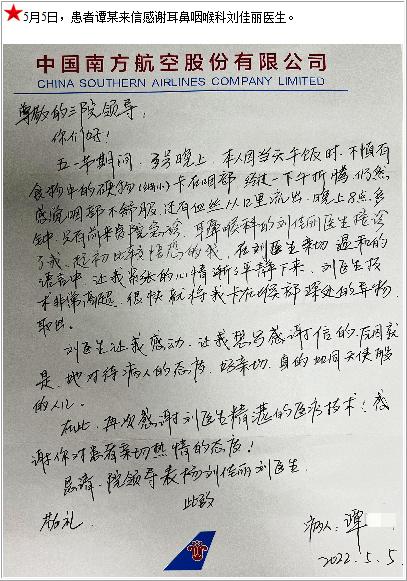 ★5月5日，患者谭某来信感谢耳鼻咽喉科刘佳丽医生。
中国南方航空股份有限公司
CHINA SOUTHERN AIRLINES COMPANY LIMITED
尊敬的三院领导：
你们好！
五一节期间，3号晚上，本人因当天午饭时，不慎有
食物中的硬物卡在咽部，经过一下午折腾仍然
感觉咽部不舒服，还有血丝从口里流出，晚上8点多
钟，只有前来贵院急诊，耳鼻喉科的刘佳丽医生接诊
了我，起初比较焦急的我，在刘医生亲切温和的
语言中，让我紧张的心情渐渐平静下来，刘医生技
术非常高超，很快就将我卡在喉部深处的异物
取出。
刘医生让我感动，让我想写感谢信的原因就
是，她对待病人的态度，好亲切，真的如同天使般
的人心
在此，再次感谢刘医生精湛的医疗技术！感
谢你对患者亲切热情的态度！
恳请院领导表扬刘佳丽刘医生
此致
敬礼
病人：谭
2022.5.5